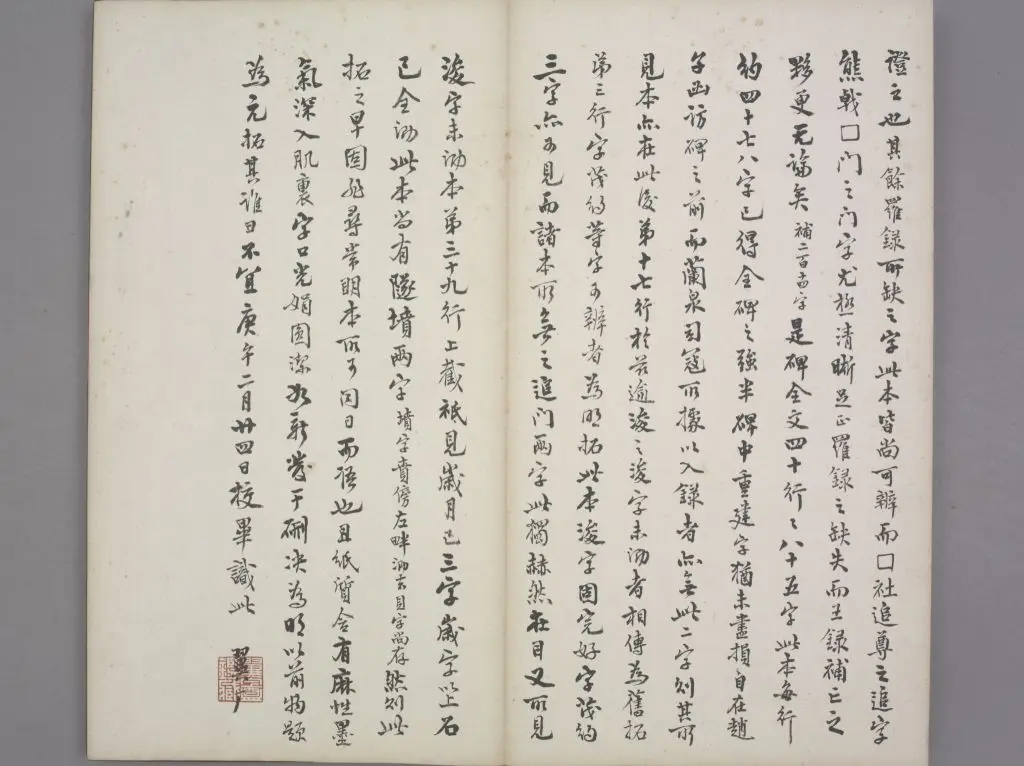 證之也其餘羅錄所缺之字此本皆尚可辨而口社追尊之追字
熊戟口門之门字尤極清晰足正羅錄之缺失而王錄補亡之
夥更无論矣補二百字是碑全文四十行々八十五字此本每行
約四十七八字已得全碑之強半碑中重建字猶未盡損自在趙
子函访碑之前而蘭泉司寇所據以入錄者亦無此二字则其所
見本亦在此後第十七行於茲逾浚之浚字未泐者相傳為舊拓
第三行字茂約等字可辨者為明拓此本浚字固完好字茂約
三字亦可見而諸本所無之追门兩字此獨赫然在目又所見
浚字未泐本第三十九行上截祇見歲月已三字歲字以上石
已全泐此本尚有隧墳兩字墳字賁傍左畔泐去目字尚存然则此
拓之早固非尋常明本所可同日而語也且紙質含有麻性墨
氣深入肌裏字口光娟圆潔如新發于硎决為明以前物题
為元拓其誰曰不宜庚午二月廿四日校畢識此